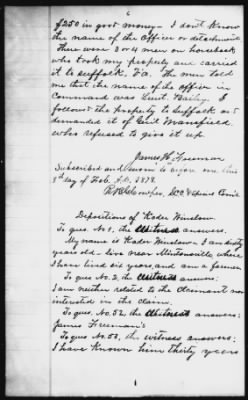 6
$250 in good money - I don't know
the name of the Officer or detachment
There were 3 or 4 men on horseback
who took my property and carried
it to Suffolk, Va. The men told
me that the name of the officer in
Command was Lieut. Bailey. I
followed the property to Suffolk and
demanded it of Lieut Mansfield
who refused to give it up.
James H. Freeman
Subscribed and sworn to before me this
day of Feb. A.D. 1878
Depositions of Kader Winslow.
To ques. No. 1. the Witness answers.
My name is Kader Winslow - I am sixty
years old - live near Mintonsville where
I have lived six years, and am a farmer
To ques. No. 2. the witness answers:
I am neither related to the Claimant nor
interested in the claim.
To ques. No. 52. the Witness answers:
James Freeman's
To ques. No. 53. the witness answers:
I have known him thirty years